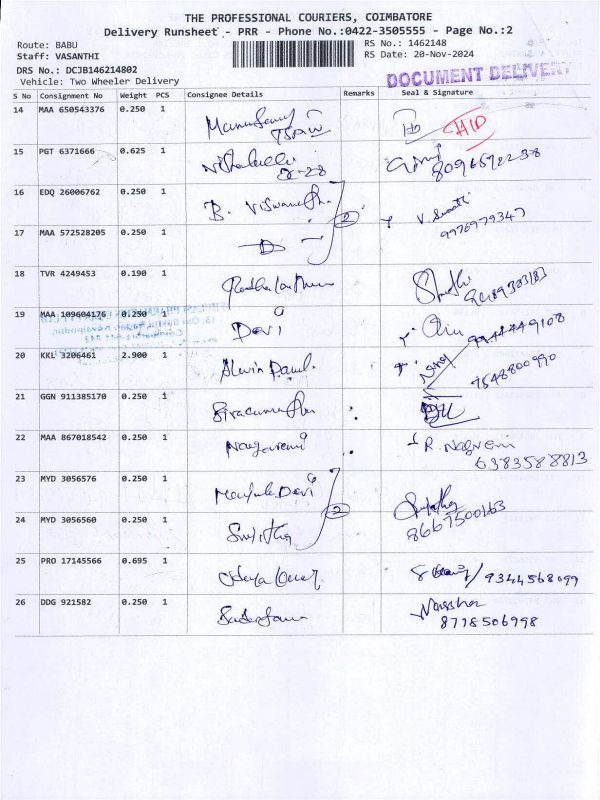 THE PROFESSIONAL COURIERS, COIMBATORE
Delivery Runsheet - PRR - Phone No.:0422-3505555 - Page No.:2
Route: BABU
RS No.: 1462148
Staff: VASANTHI
RS Date: 20-Nov-2024
DRS No.: DCJB146214802
DOCUMENT DELIVERY
Vehicle: Two Wheeler Delivery
S No Consignment No Weight PCS Consignee Details Remarks Seal & Signature
14 MAA 650543376 0.250 1
HID
15 PGT 6371666 0.625 1
8-28
16 EDQ 26006762 0.250 1 B. Viswanath. 2
9976979347
17 MAA 572528205 0.250 1
18 TVR 4249453 0.190 1
19 MAA 109604176 0.250 1 Devi
9944449108
20 KKL 3206461 2.900 1 Alwin Paul.
9548800990
21 GGN 911385170 0.250 1
22 MAA 867018542 0.250 1 Nagaveni R. Nagveni
6383588813
23 MYD 3056576 0.250 1 Manjula Devi 2
24 MYD 3056560 0.250 1 Sujatha Sujatha
8667500163
25 PRO 17145566 0.695 1 9344568099
26 DDG 921582 0.250 1
8778506998